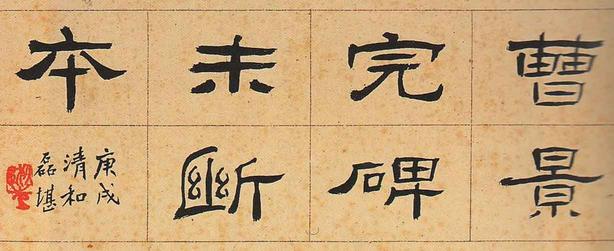 曹景
完碑
未斷
本
庚戌
清和
磊堪